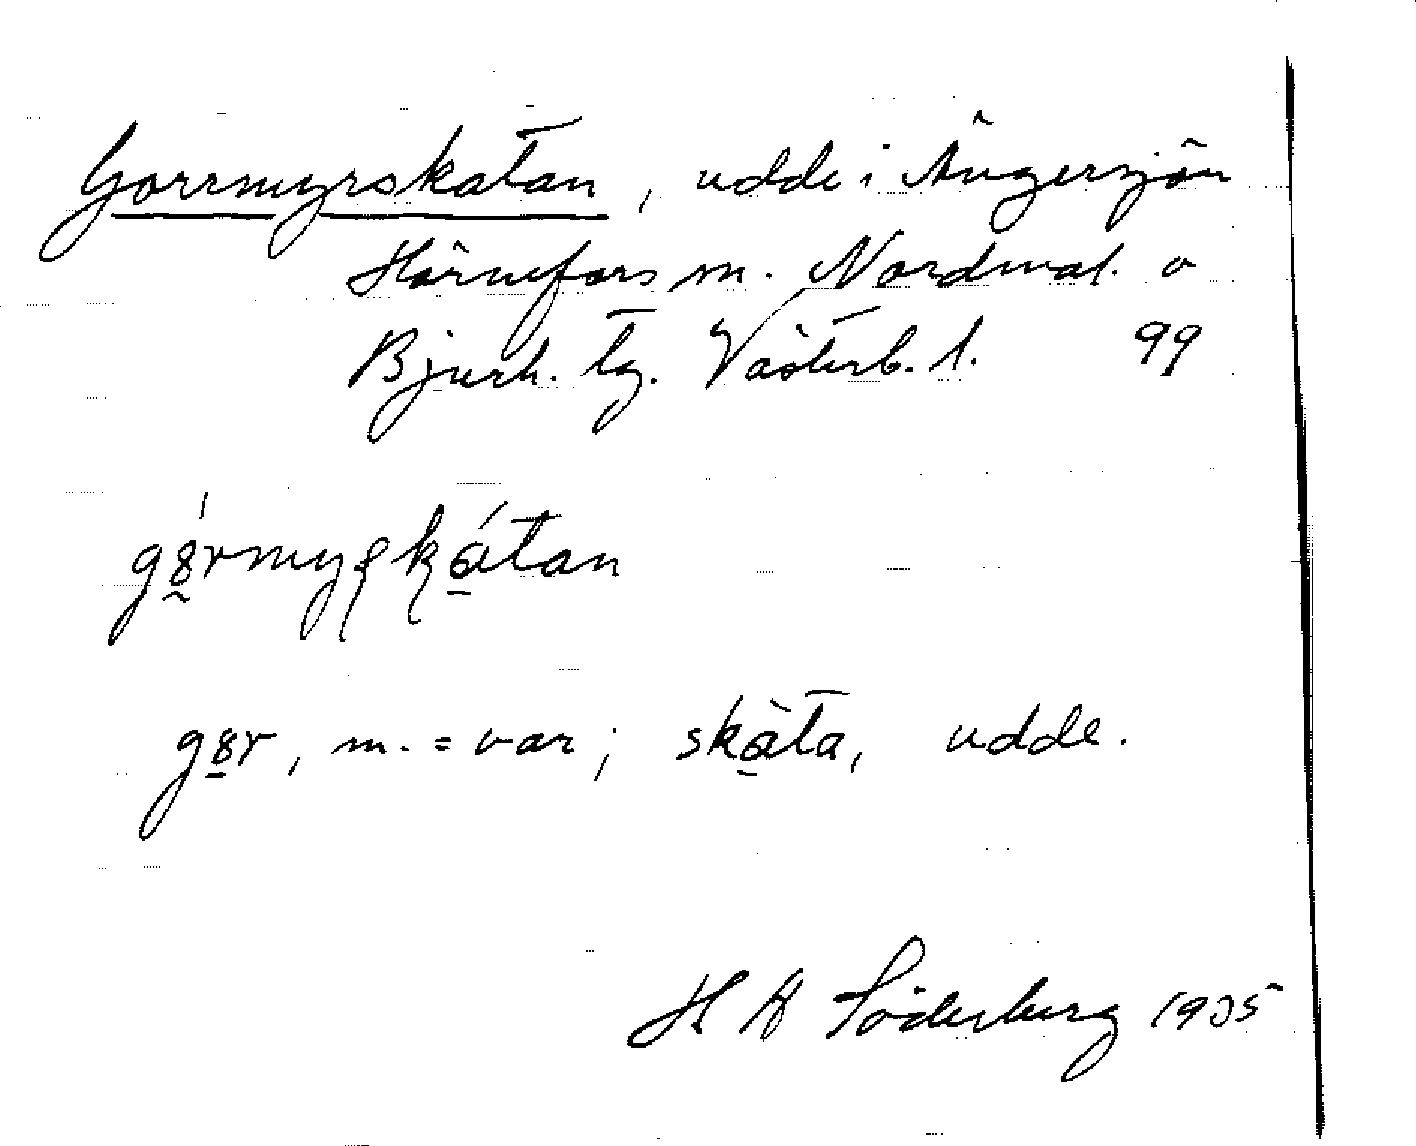 Gorrmyrskatan, udde i Ängersjön
Hörnefors sn. Nordmal. o
Bjurh. tg. Västerb. l. 99
górmyrskátan
gor, m. = var; skàta, udde.
H A Söderberg 1935